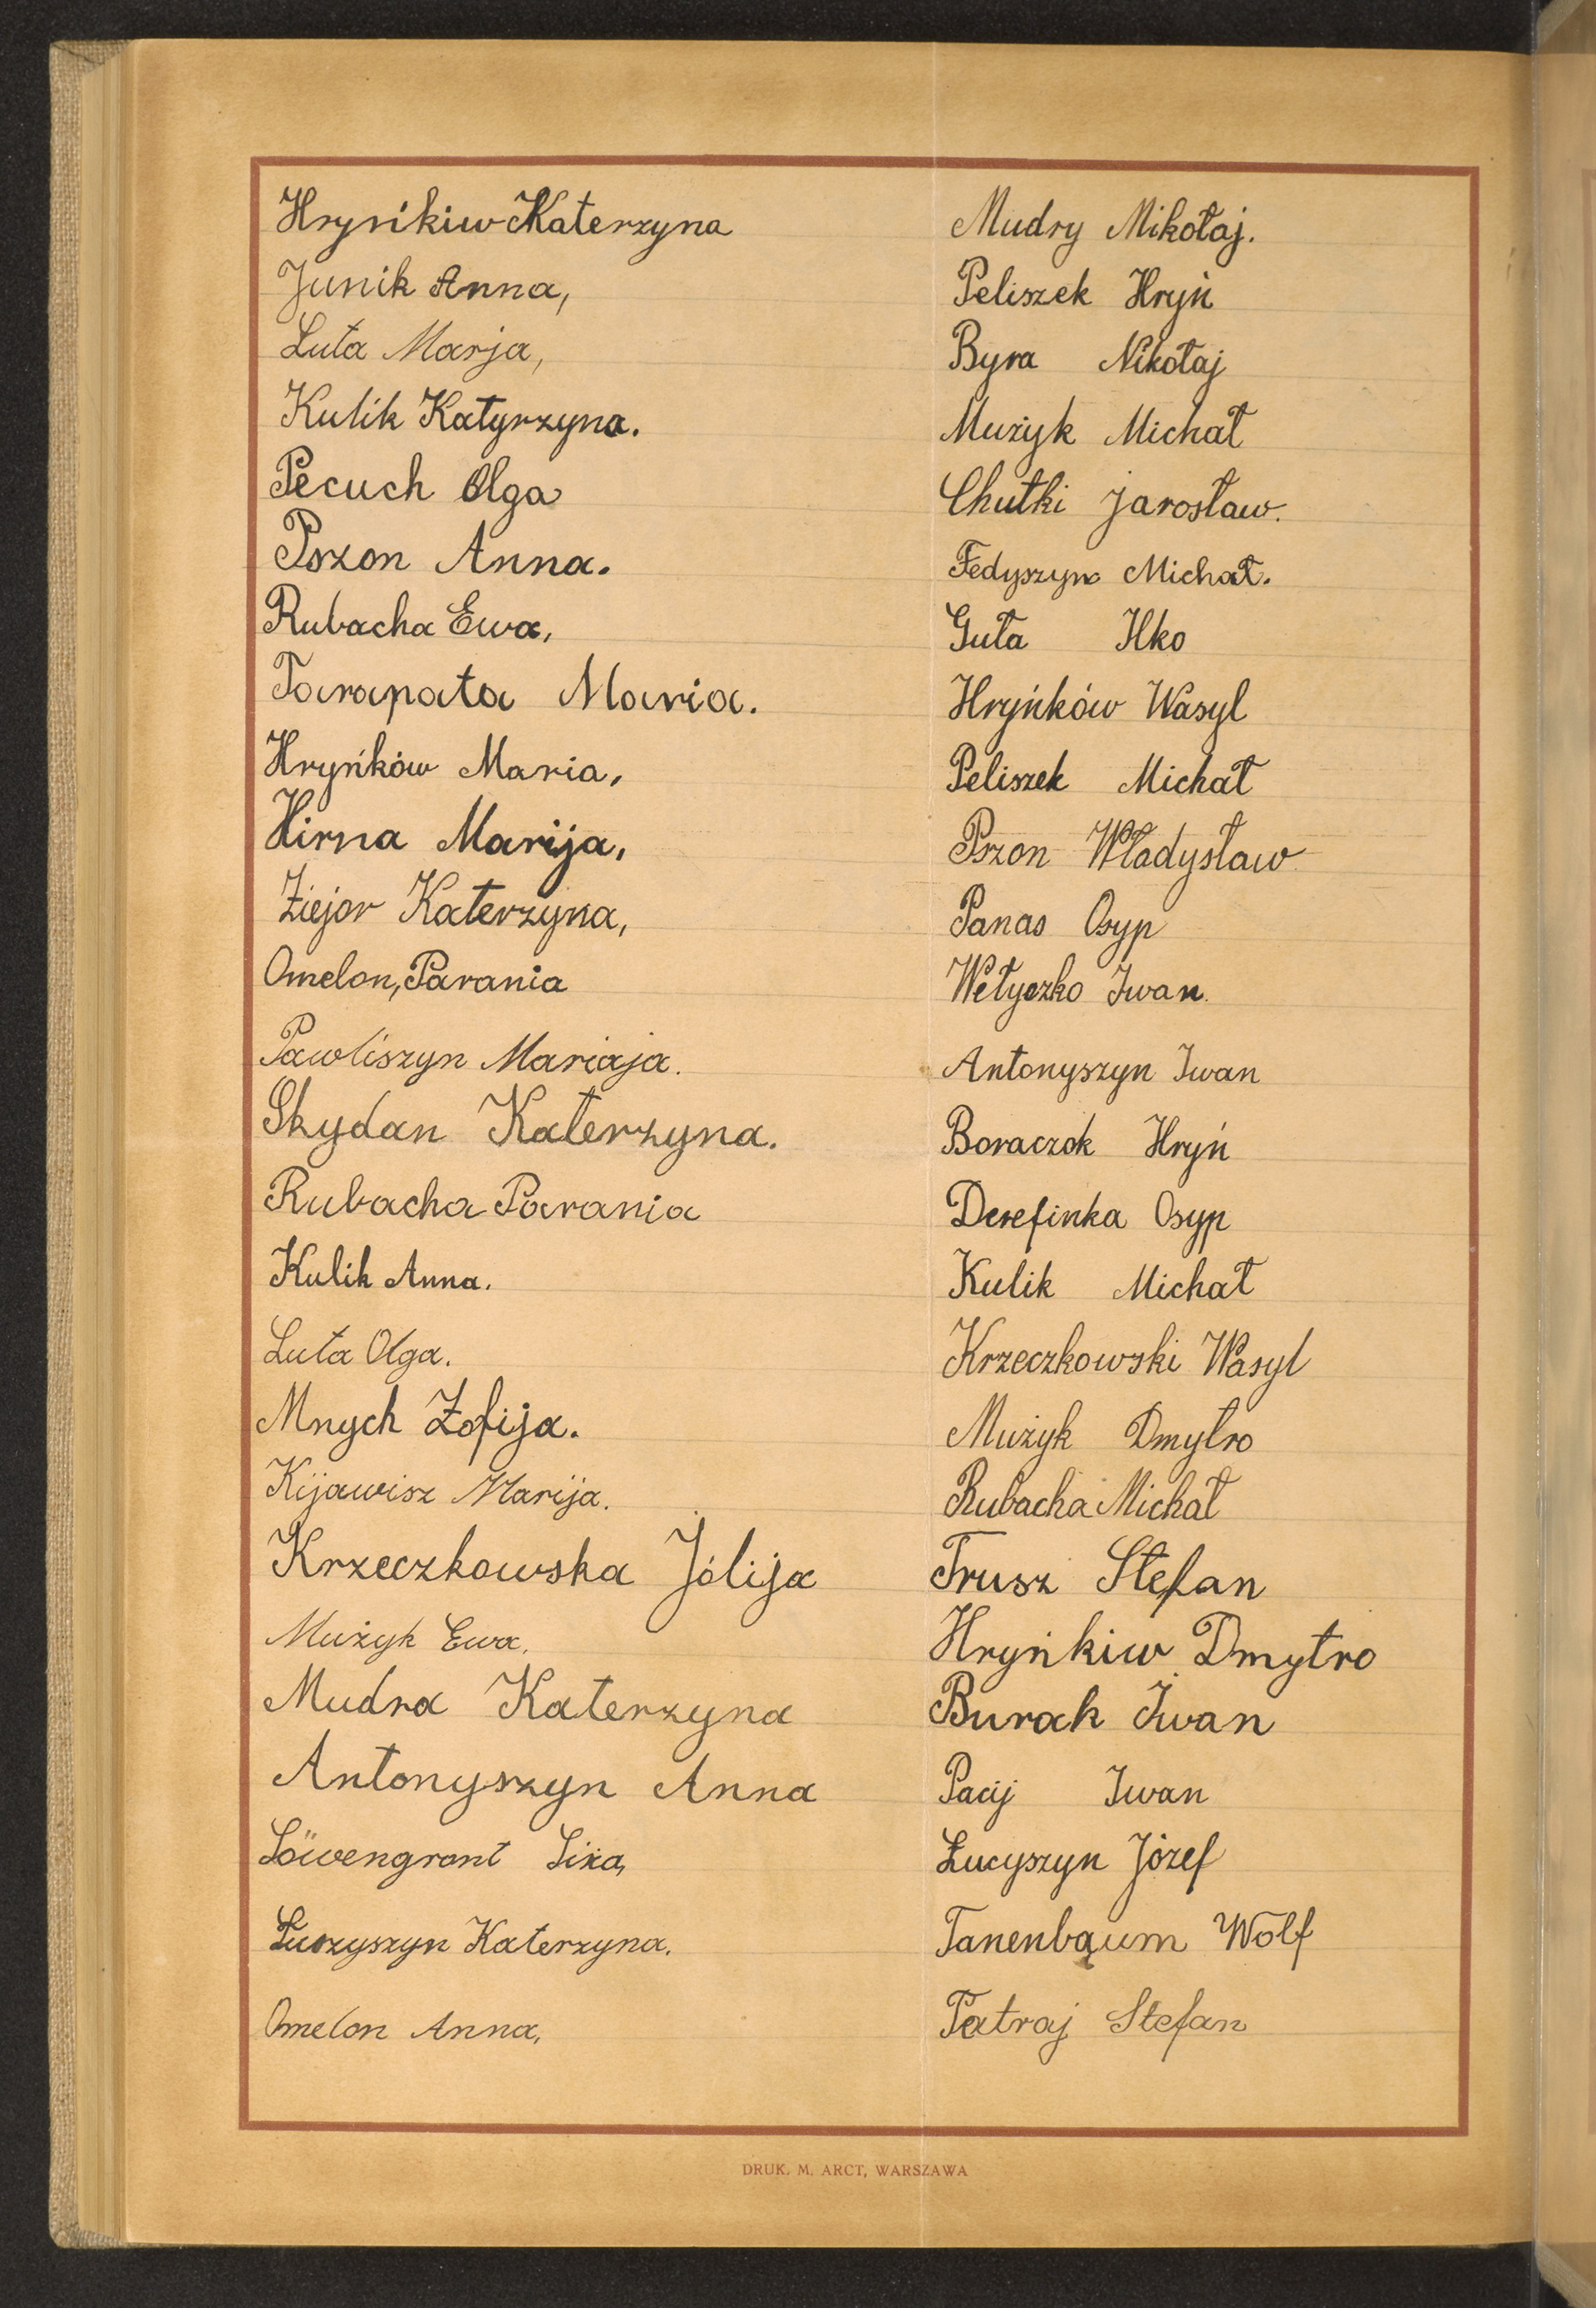 Hryńkiw Katerzyna
Junik Anna,
Luta Marja,
Kulik Katyrzyna.
Pecuch Olga
Pszon Anna.
Rubacha Ewa,
Tarapata Maria.
Hryńków Maria,
Hirna Marija,
Ziejor Katerzyna,
Omelon, Parania
Pawliszyn Mariaja.
Skydan Katerzyna.
Rubacha Parania
Kulik Anna.
Luta Olga.
Mnych Zofija.
Kijawisz Marija.
Krzeczkowska Jólija
Mużyk Ewa.
Mudra Katerzyna
Antonyszyn Anna
Löwengrant
Łuczyszyn Katerzyna.
Omelon Anna,
Mudry Mikołaj.
Peliszek Hryń
Byra Nikołaj
Mużyk Michał
Chutki Jarosław.
Fedyszyn Michał.
Guła Ilko
Hryńków Wasyl
Peliszek Michał
Pszon Władysław
Panas Osyp
Wełyczko Iwan.
Antonyszyn Iwan
Boraczok Hryń
Derefinka Osyp
Kulik Michał
Krzeczkowski Wasyl
Mużyk Dmytro
Rubacha Michał
Trusz Stefan
Hryńkiw Dmytro
Burak Iwan
Pacij Iwan
Łucyszyn Józef
Tanenbaum Wolf
Patraj Stefan
DRUK. M. ARCT, WARSZAWA